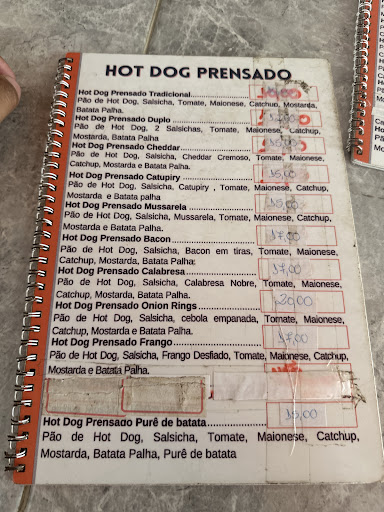 HOT DOG PRENSADO
Hot Dog Prensado Tradicional
Pão de Hot Dog, Salsicha, Tomate, Maionese, Catchup, Mostarda,
Batata Palha.
Hot Dog Prensado Duplo
Pão de Hot Dog, 2 Salsichas, Tomate, Maionese, Catchup,
Mostarda e Batata Palha.
Hot Dog Prensado Cheddar
Pão de Hot Dog, Salsicha, Cheddar Cremoso, Tomate, Maionese,
Catchup, Mostarda e Batata Palha.
Hot Dog Prensado Catupiry 15,00
Pão de Hot Dog, Salsicha, Catupiry , Tomate, Maionese, Catchup,
Mostarda e Batata palha
Hot Dog Prensado Mussarela
Pão de Hot Dog, Salsicha, Mussarela, Tomate, Maionese, Catchup,
Mostarda e Batata Palha.
Hot Dog Prensado Bacon 17,00
Pão de Hot Dog, Salsicha, Bacon em tiras, Tomate, Maionese,
Catchup, Mostarda, Batata Palha.
Hot Dog Prensado Calabresa 17,00
Pão de Hot Dog, Salsicha, Calabresa Nobre, Tomate, Maionese,
Catchup, Mostarda e Batata Palha.
Hot Dog Prensado Onion Rings 20,00
Pão de Hot Dog, Salsicha, cebola empanada, Tomate, Maionese,
Catchup, Mostarda e Batata Palha.
Hot Dog Prensado Frango 17,00
Pão de Hot Dog, Salsicha, Frango Desfiado, Tomate, Maionese, Catchup,
Mostarda e Batata Palha.
Hot Dog Prensado Purê de batata 15,00
Pão de Hot Dog, Salsicha, Tomate, Maionese, Catchup,
Mostarda, Batata Palha, Purê de batata